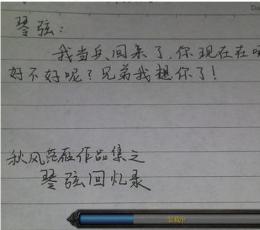 琴弦：
我当兵回来了，你现在在
好不好呢？兄弟我想你了！
秋风落叶作品集之
琴弦回忆录